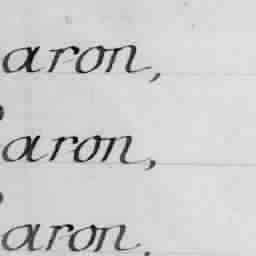 aron,
aron,
aron,